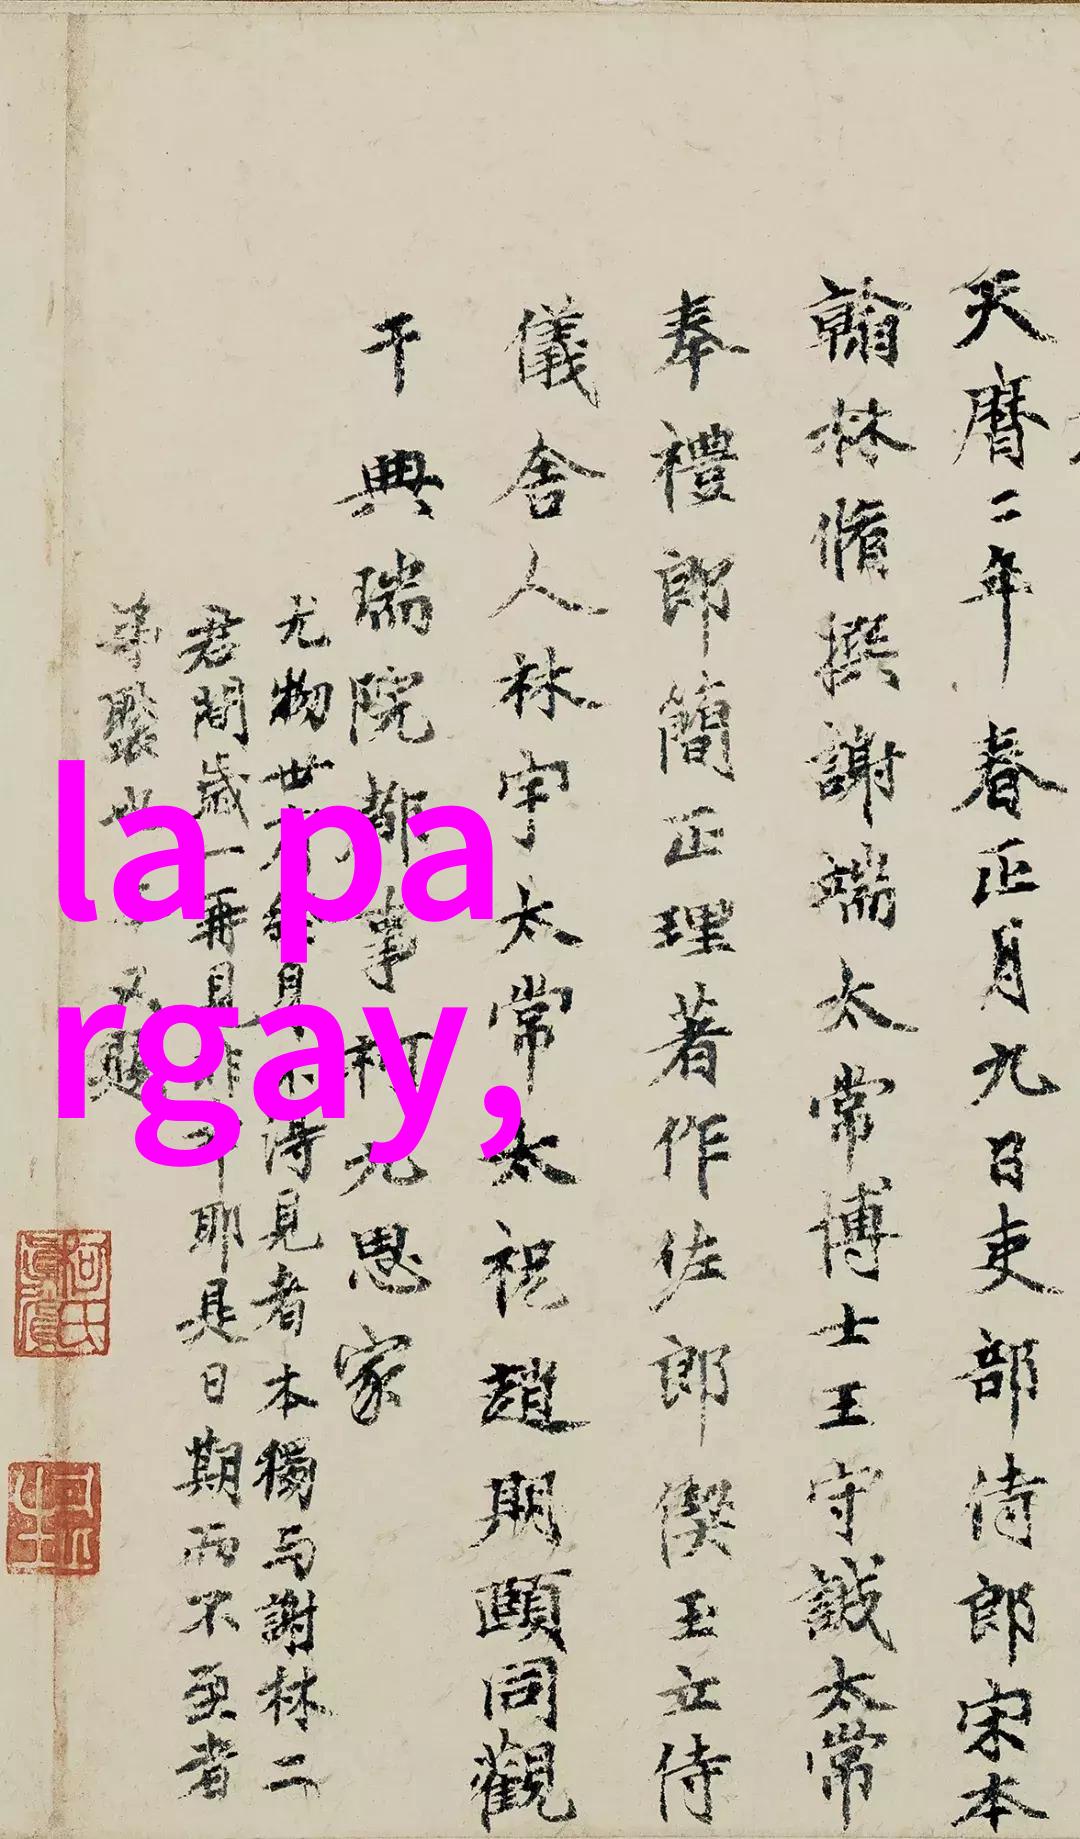 天曆二年春正月九日吏部侍郎宋本
翰林脩撰謝端太常博士王守誠太常
奉禮郎簡正理著作佐郎偰玉立侍
儀舍人林宇太常太祝趙期頤同觀
于典瑞院都事柯九思家
尤物世有終身不得見者本獨与謝林二
君間歲一再見非幸耶是日期而不至者
la pa
rgay,